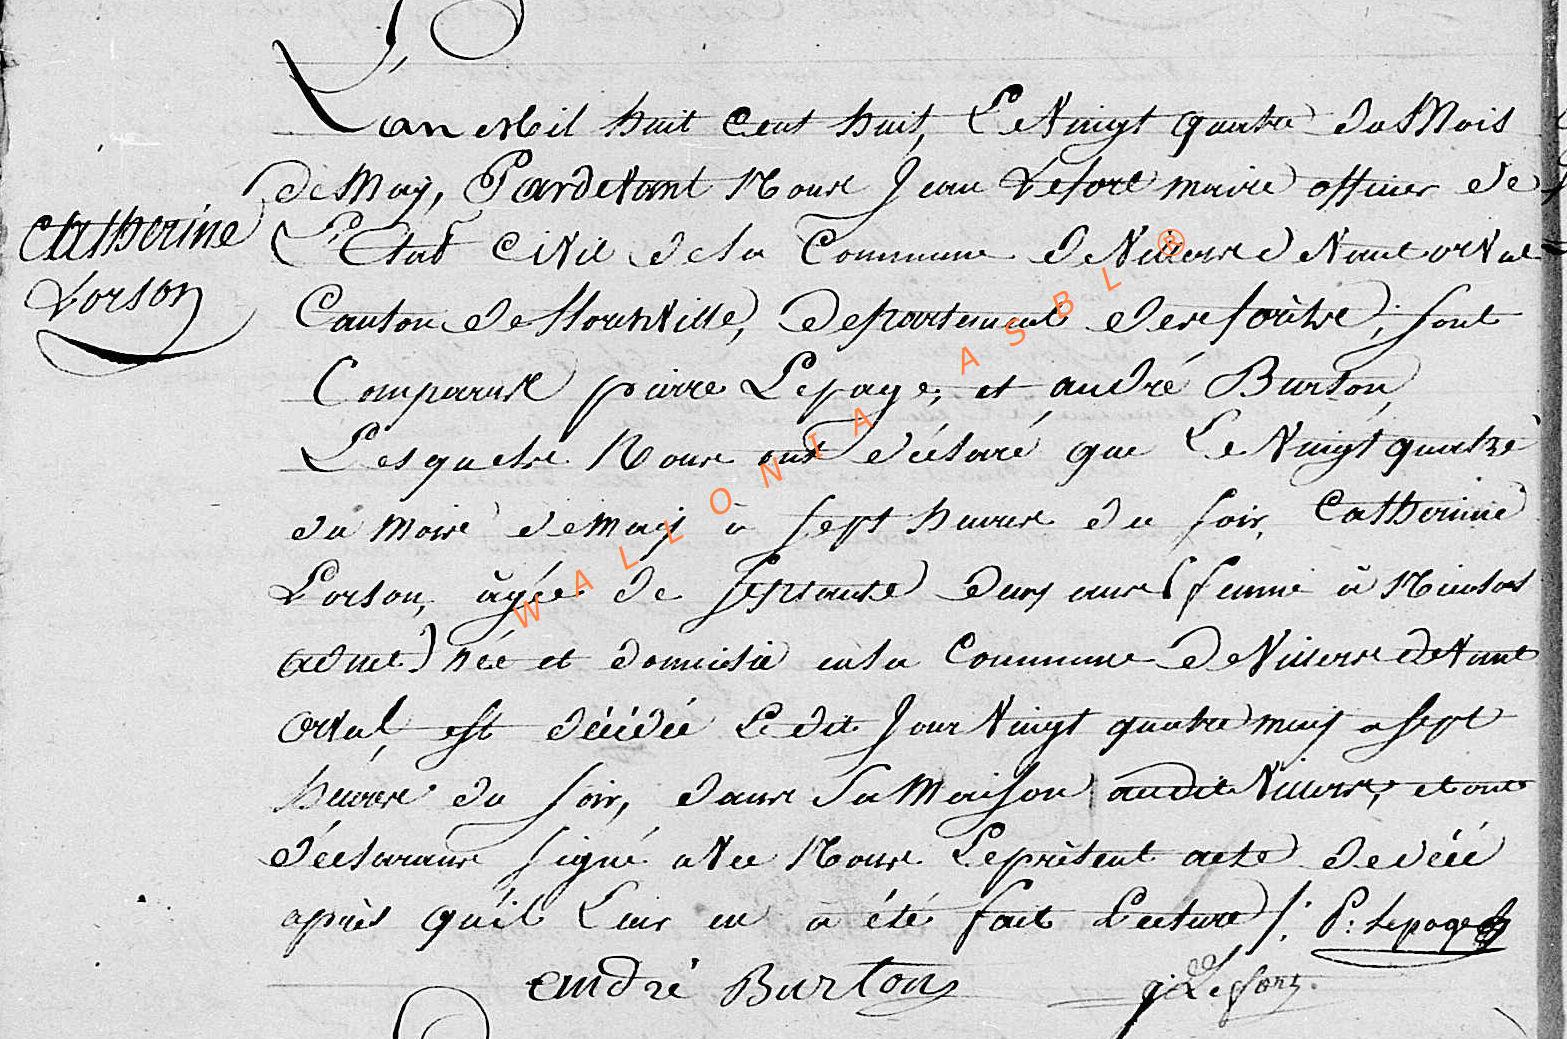 L'an Mil huit Cent huit, Le Vingt quatre du Mois
de May, Pardevant Nous Jean Lefort maire officier de
Catherine
L'Etat Civil de la Commune de Villers devant orval
Lorson
Canton de florenville, departement des forêts, sont
Comparus pierre Lepage, et andré Burton,
Lesquels Nous ont déclaré que Le Vingt quatre
du mois de may à sept heures du soir, Catherine
Lorson, âgée de septante deux ans (femme à Nicolas
) née et domicilié en la Commune de Villers devant
orval, est décédée Le dit Jour Vingt quatre may a sept
heures du soir, dans Sa Maison audit Villers, et ont
déclarans signé avec Nous Le présent acte de décé
après qu'il Leur en a été fait Lecture /: P: Lepage
andré Burton J: Lefort.
WALLONIA ASBL ®